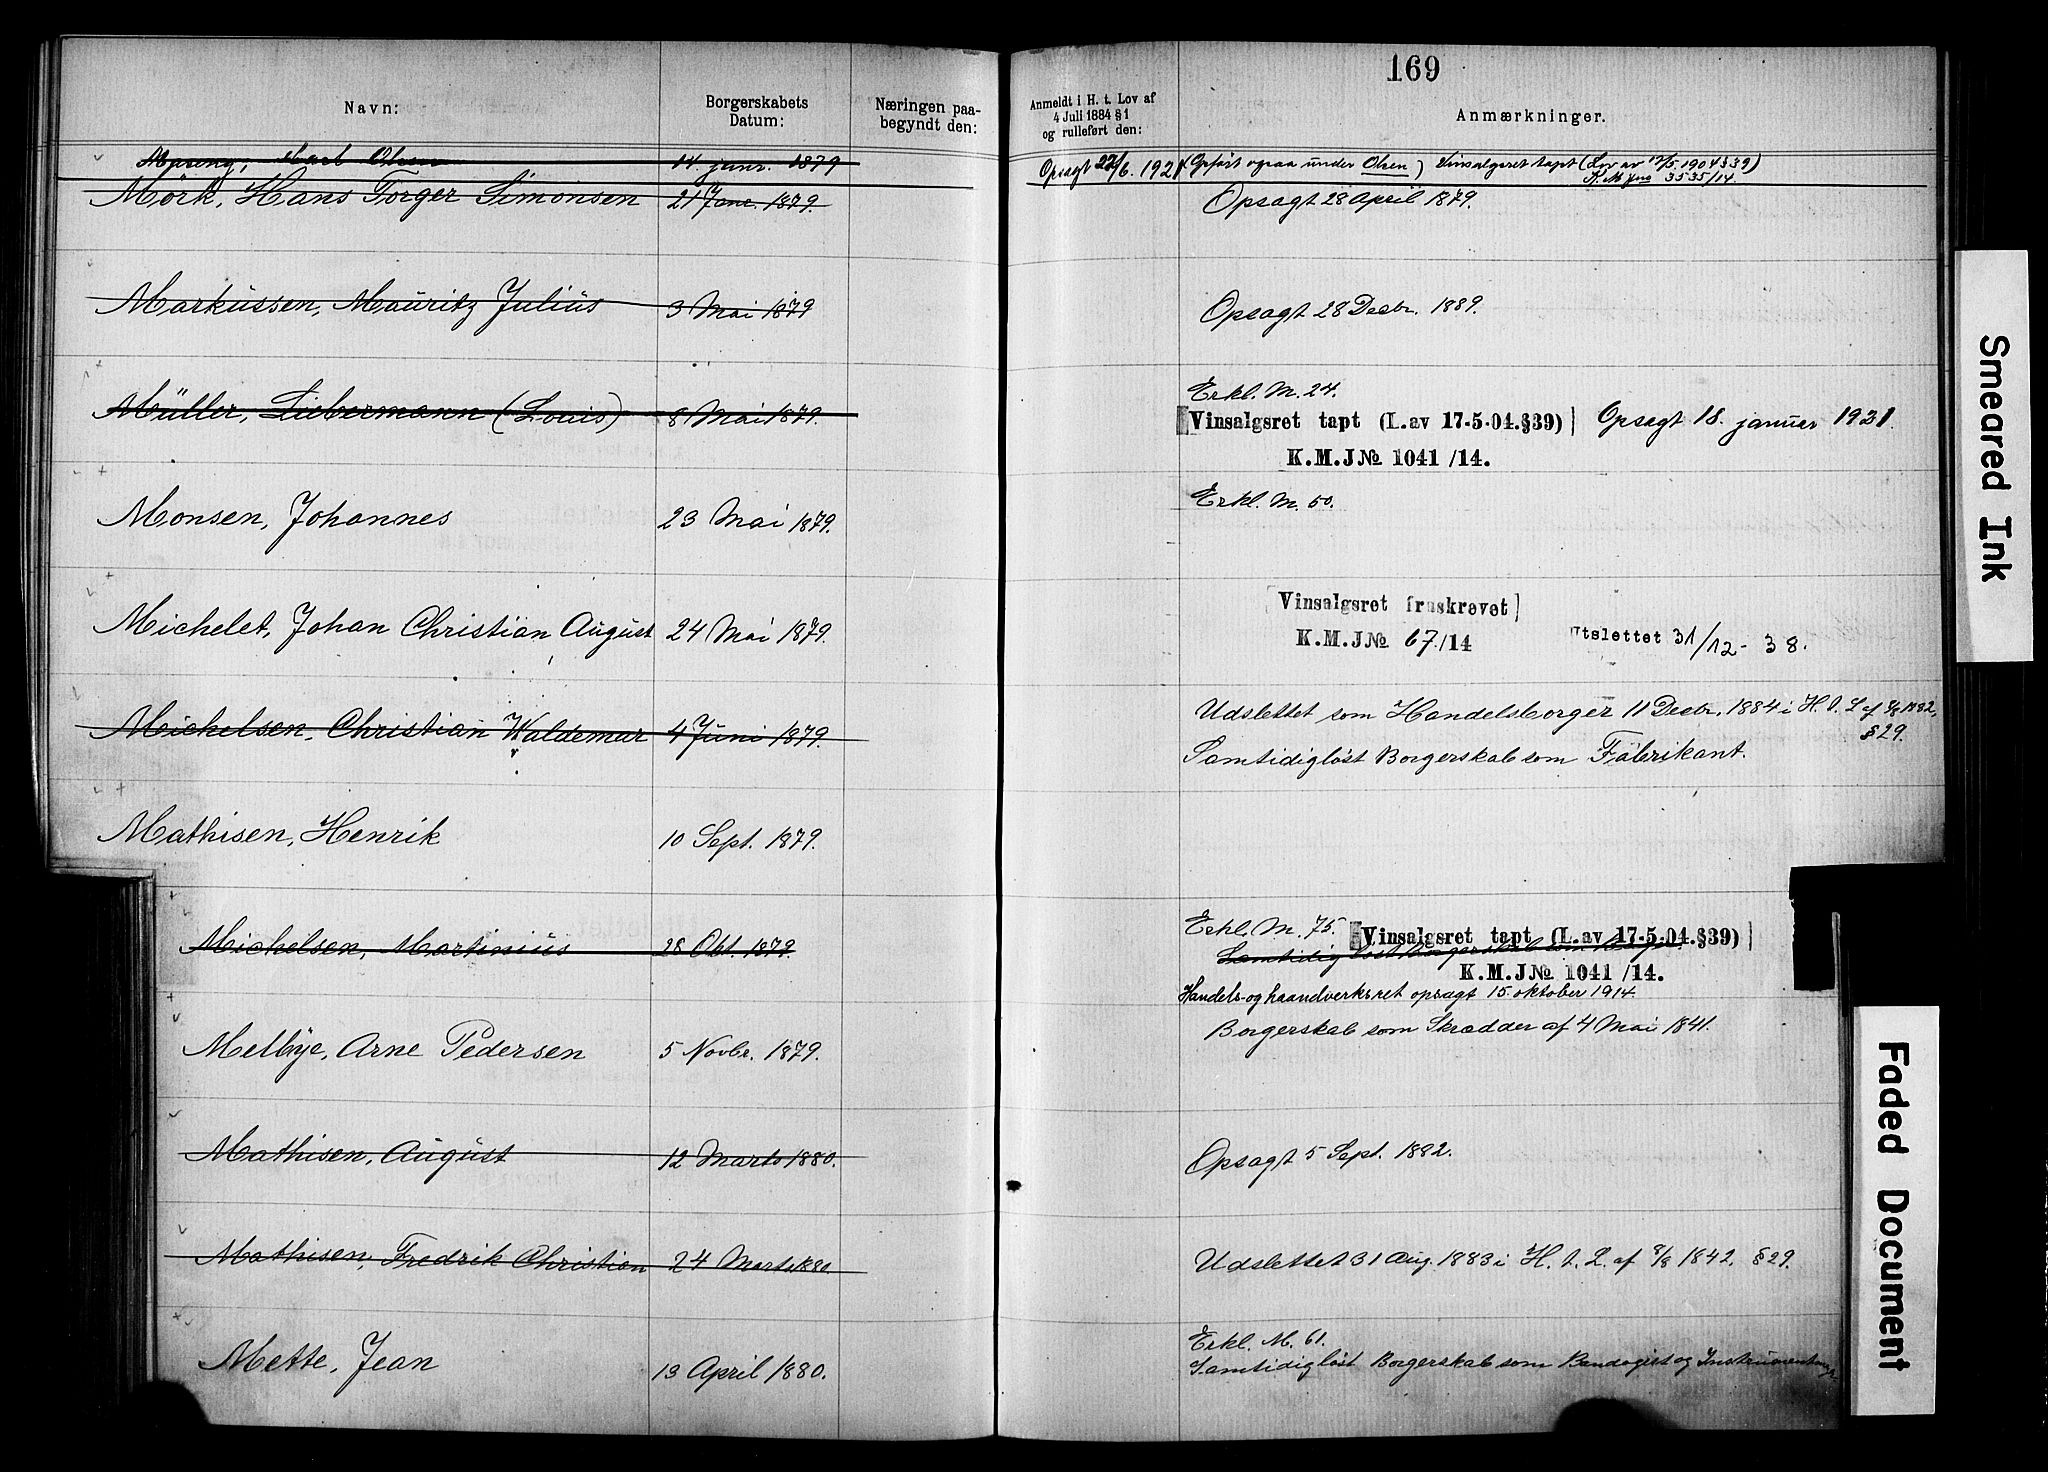 169
Navn: Borgerskabets Datum: Næringen paa-begyndt den: Anmeldt i H. t. Lov af 4 Juli 1884 §1 og rulleført den: Anmærkninger.
Olsen 14. janr. 1879 Opsagt 27/6. 1921 (Opført ogsaa under Olsen) Vinsalgsret tapt (Lov av 17/5 1904 §39)
K. M. Jno 3535/14.
Mörk, Hans Torger Simonsen 21 Janr. 1879. Opsagt 28 April 1879.
Markussen, Mauritz Julius 3 Mai 1879 Opsagt 28 Decbr. 1889.
Erkl. M. 24.
Müller, Liebermann (Louis) 8 Mai 1879. Vinsalgsret tapt (L. av 17-5-04. §39) Opsagt 18. januar 1921.
K. M. J№ 1041 /14.
Erkl. M. 50.
Monsen, Johannes 23 Mai 1879.
Vinsalgsret fraskrevet
Michelet, Johan Christian August 24 Mai 1879. K. M. J№ 67/14 Utslettet 31/12-38.
Udslettet som Handelsborger 11 Decbr. 1884 i H. t. L af
§29.
Michelsen, Christian Waldemar 4 Juni 1879. Samtidig löst Borgerskab som Fabrikant.
Mathisen, Henrik 10 Sept. 1879.
Erkl. M. 75. Vinsalgsret tapt (L. av 17-5-04. §39)
Michelsen, Martinius 28 Okt. 1879. Samtidig löst Borgerskab som
K. M. J№ 1041 /14.
Handels- og haandverksret opsagt 15. oktober 1914
Borgerskab som Skrædder af 4 Mai 1841.
Melbye, Arne Pedersen 5 Novbr. 1879.
Mathisen, August 12 Marts 1880. Opsagt 5 Sept. 1882.
Mathisen, Fredrik Christian 24 Marts 1880. Udslettet 31 Aug. 1883 i H. t. L. af 8/8 1842, §29.
Erkl. M. 61.
Mette, Jean 13 April 1880. Samtidig löst Borgerskab som Bandagist og
Smeared Ink
Faded Document